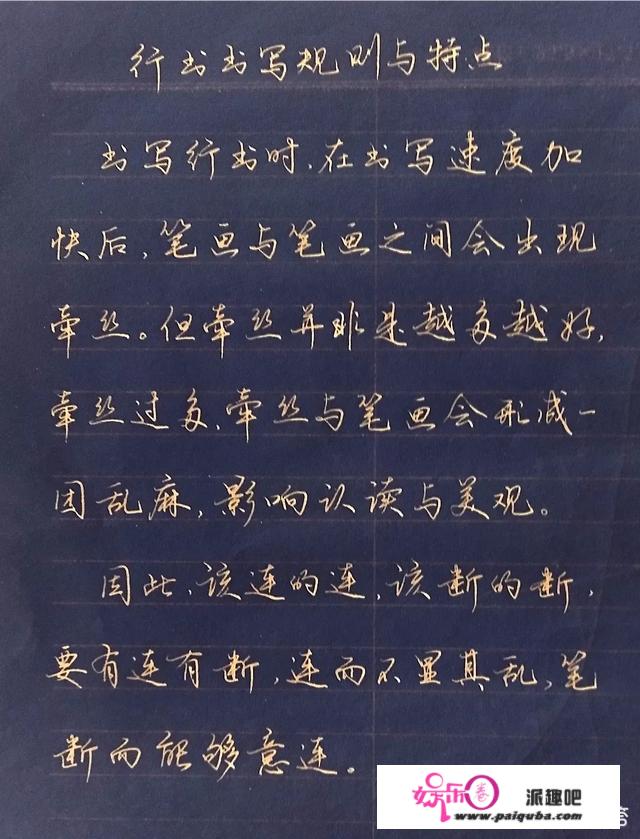 行书书写规则与特点
书写行书时,在书写速度加
快后,笔画与笔画之间会出现
牵丝。但牵丝并非是越多越好,
牵丝过多,牵丝与笔画会形成一
团乱麻,影响认读与美观。
因此,该连的连,该断的断,
要有连有断,连而不显其乱,笔
断而能够意连。
娱乐圈 派趣吧
www.paiquba.com